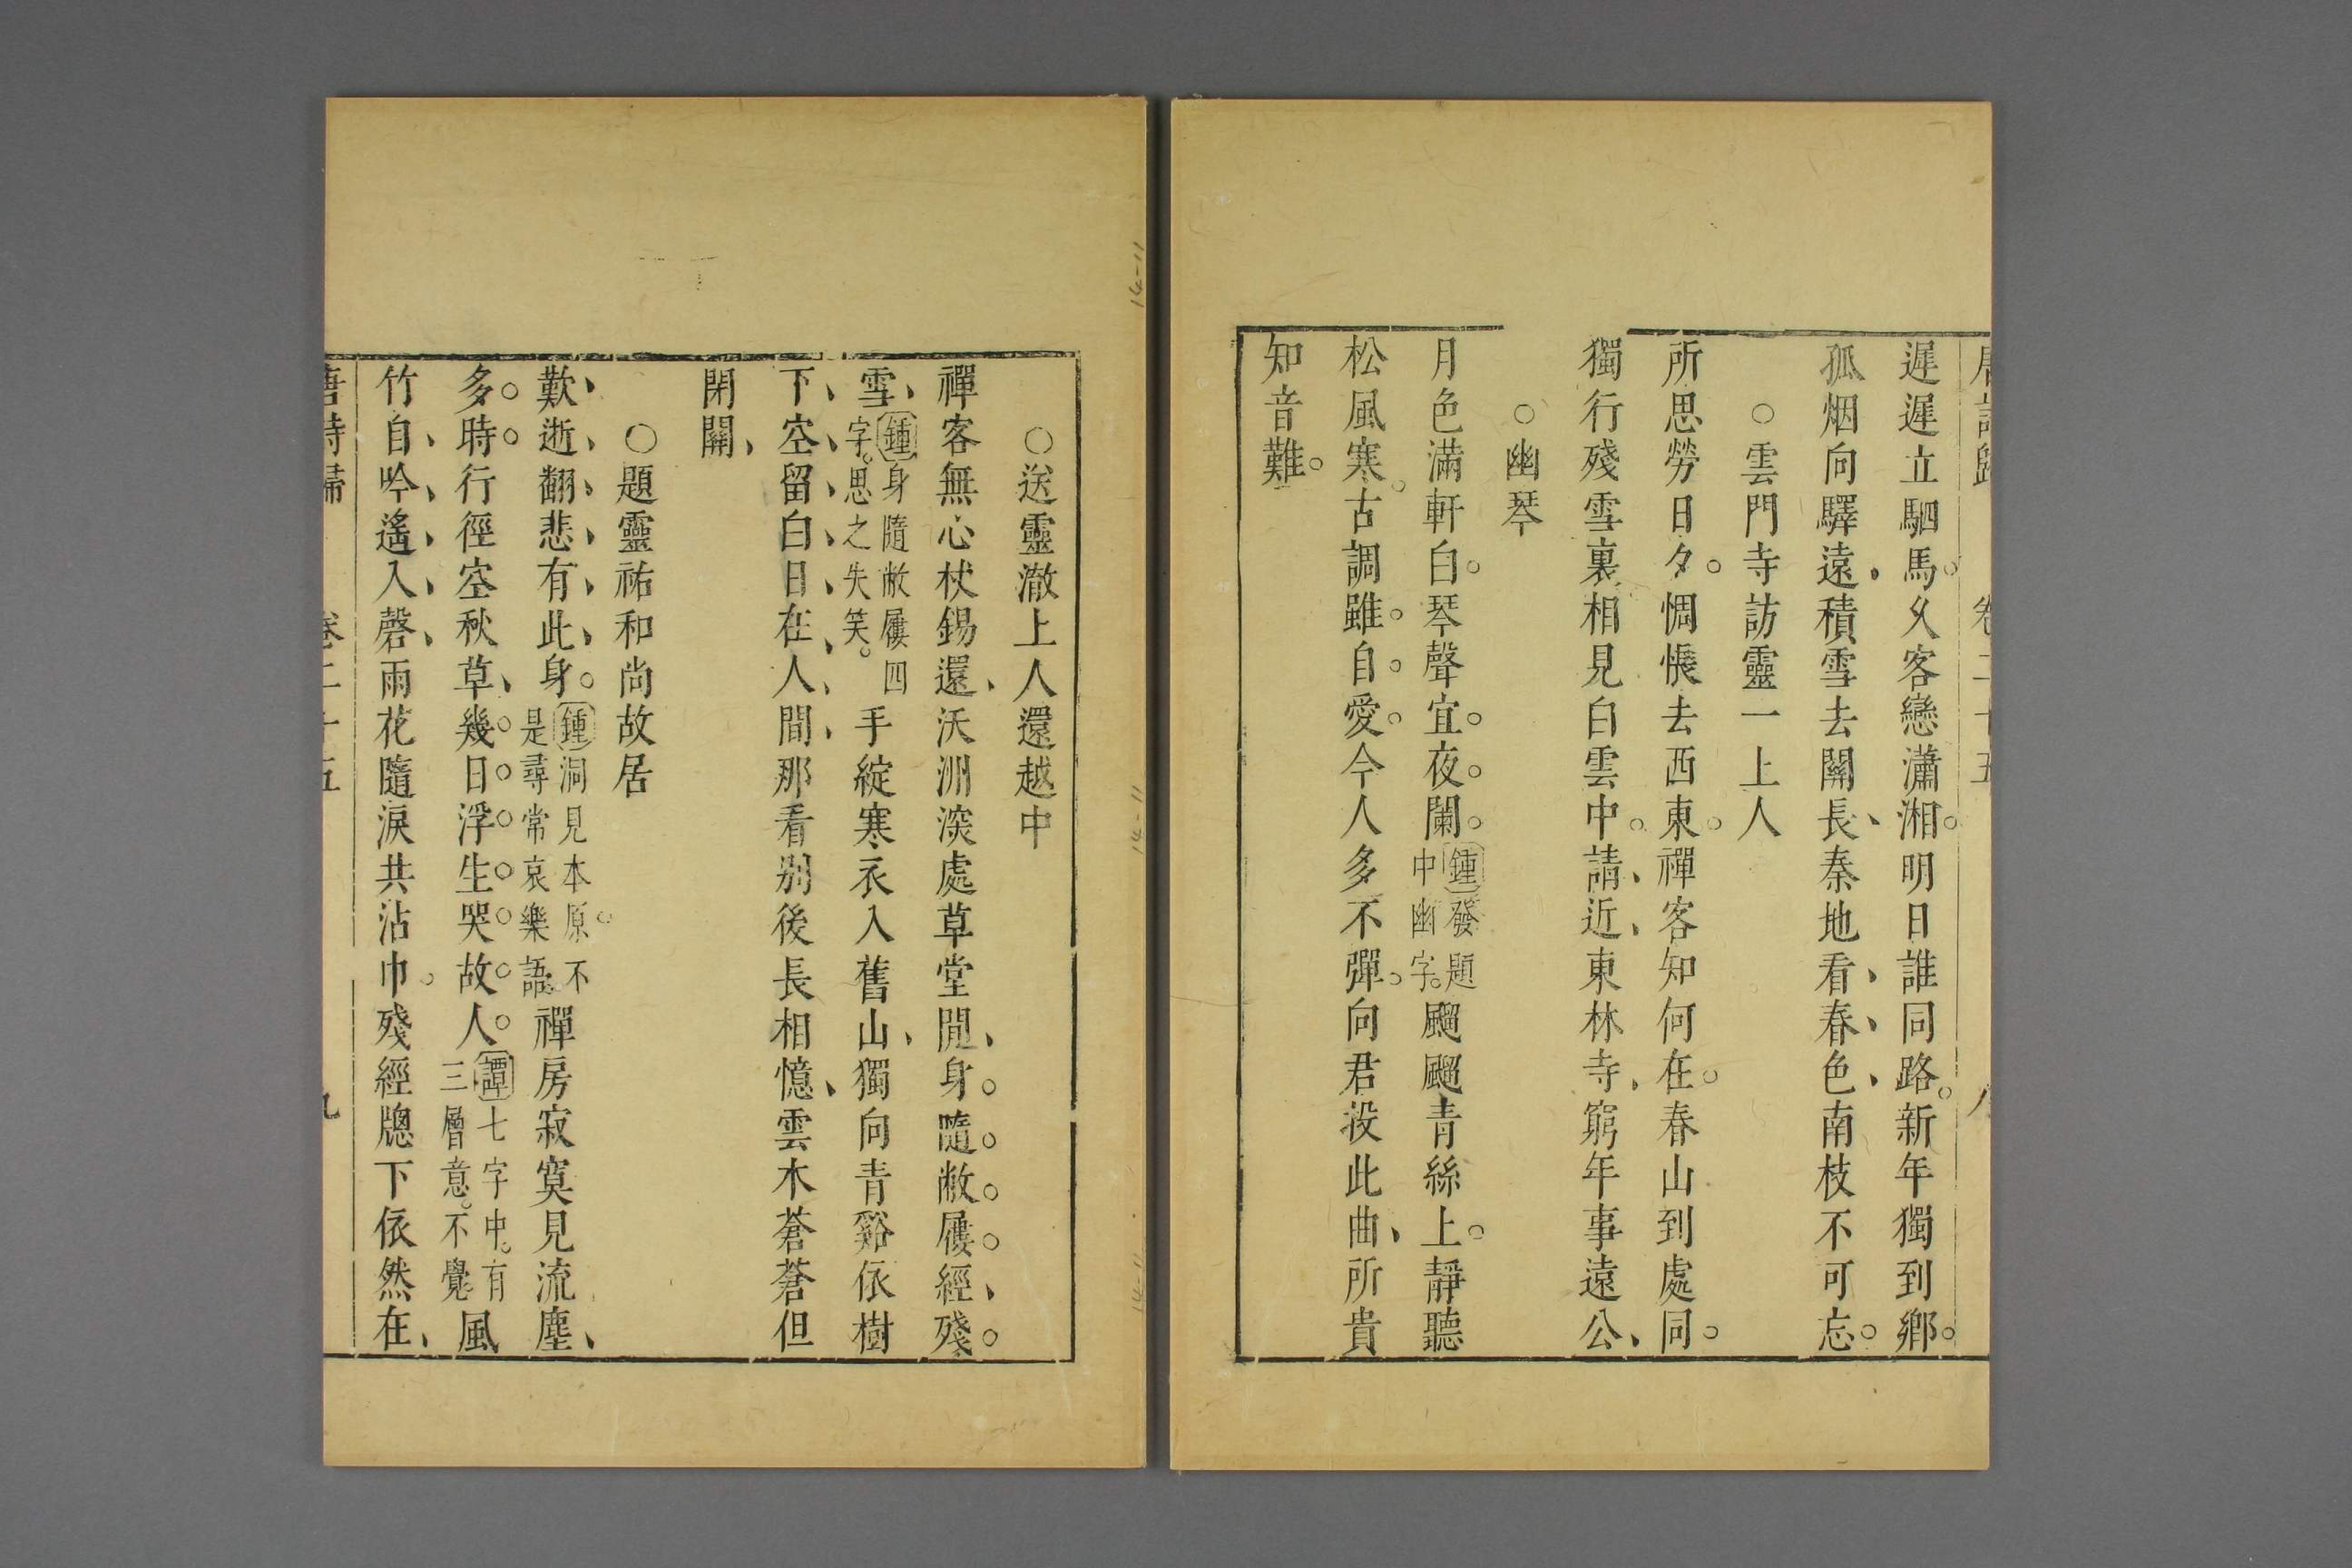 遲遲立駟馬久客戀瀟湘明日誰同路新年獨到鄉
孤烟向驛遠積雪去關長秦地看春色南枝不可忘
○雲門寺訪靈一上人
所思勞日夕惆悵去西東禪客知何在春山到處同
獨行殘雪裏相見白雲中請近東林寺窮年事遠公
○幽琴
月色滿軒白琴聲宜夜闌鍾發題中幽字颼颼青絲上靜聽
松風寒古調雖自愛今人多不彈向君投此曲所貴
知音難
○送靈澈上人還越中
禪客無心杖錫還沃洲深處草堂閒身隨敝屨經殘
雪鍾身隨敝屨四字思之失笑手綻寒衣入舊山獨向青谿依樹
下空留白日在人間那看別後長相憶雲木蒼蒼但
閉關
○題靈祐和尚故居
歎逝翻悲有此身鍾洞見本原不是尋常哀樂語禪房寂寞見流塵
多時行徑空秋草幾日浮生哭故人譚七字中有三層意不覺風
竹自吟遙入磬雨花隨淚共沾巾殘經牕下依然在
唐詩歸 卷二十五 九